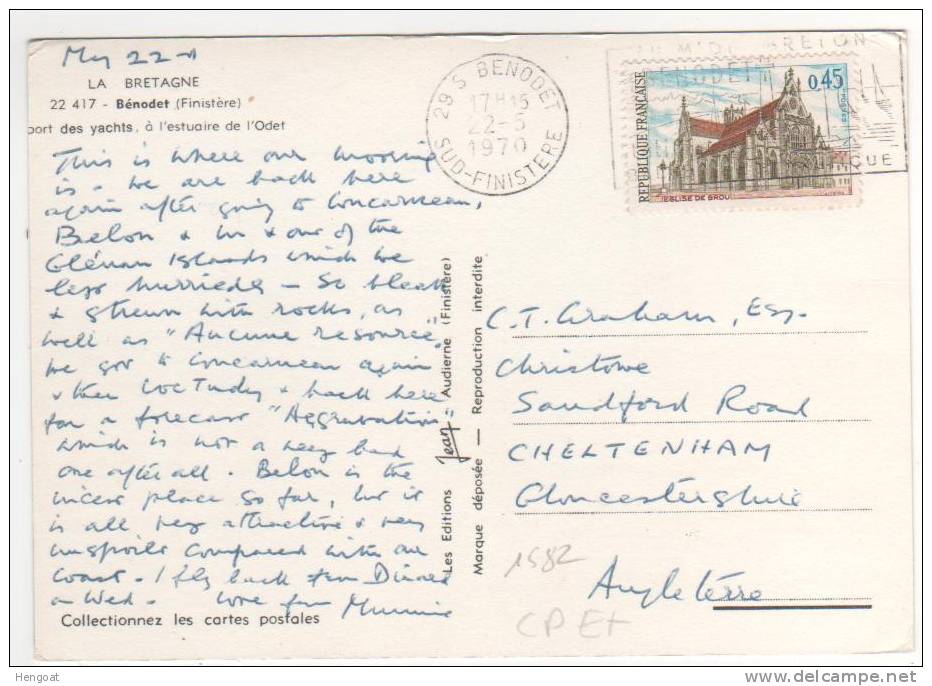 May 22nd
LA BRETAGNE
22 417 - Bénodet (Finistère)
port des yachts, à l'estuaire de l'Odet
This is where our mooring
is - we are back here
again after going to Concarneau,
Belon & in & out of the
Glénan Islands which we
left hurriedly - so bleak
& strewn with rocks, as
well as "Aucune resource".
We got to Concarneau again
& then Loctudy & back here
for a forecast "Aggravation"
which is not a very bad
one after all. Belon is the
nicest place so far, but it
is all very attractive & very
unspoilt compared with our
coast. I fly back from Dinard
on Wed. Love from Mummie
Collectionnez les cartes postales
Les Editions Jean - Audierne (Finistère)
Marque déposée — Reproduction interdite
29 S BENODET
17H15
22-5
1970
SUD-FINISTERE
BRETON
BENODET
REPUBLIQUE FRANÇAISE
0,45
POSTES
EGLISE DE BROU
C.T. Graham, Esq.
Christowe
Sandford Road
CHELTENHAM
Gloucestershire
Angleterre
1582
CP Et
Hengoat
delcampe.net